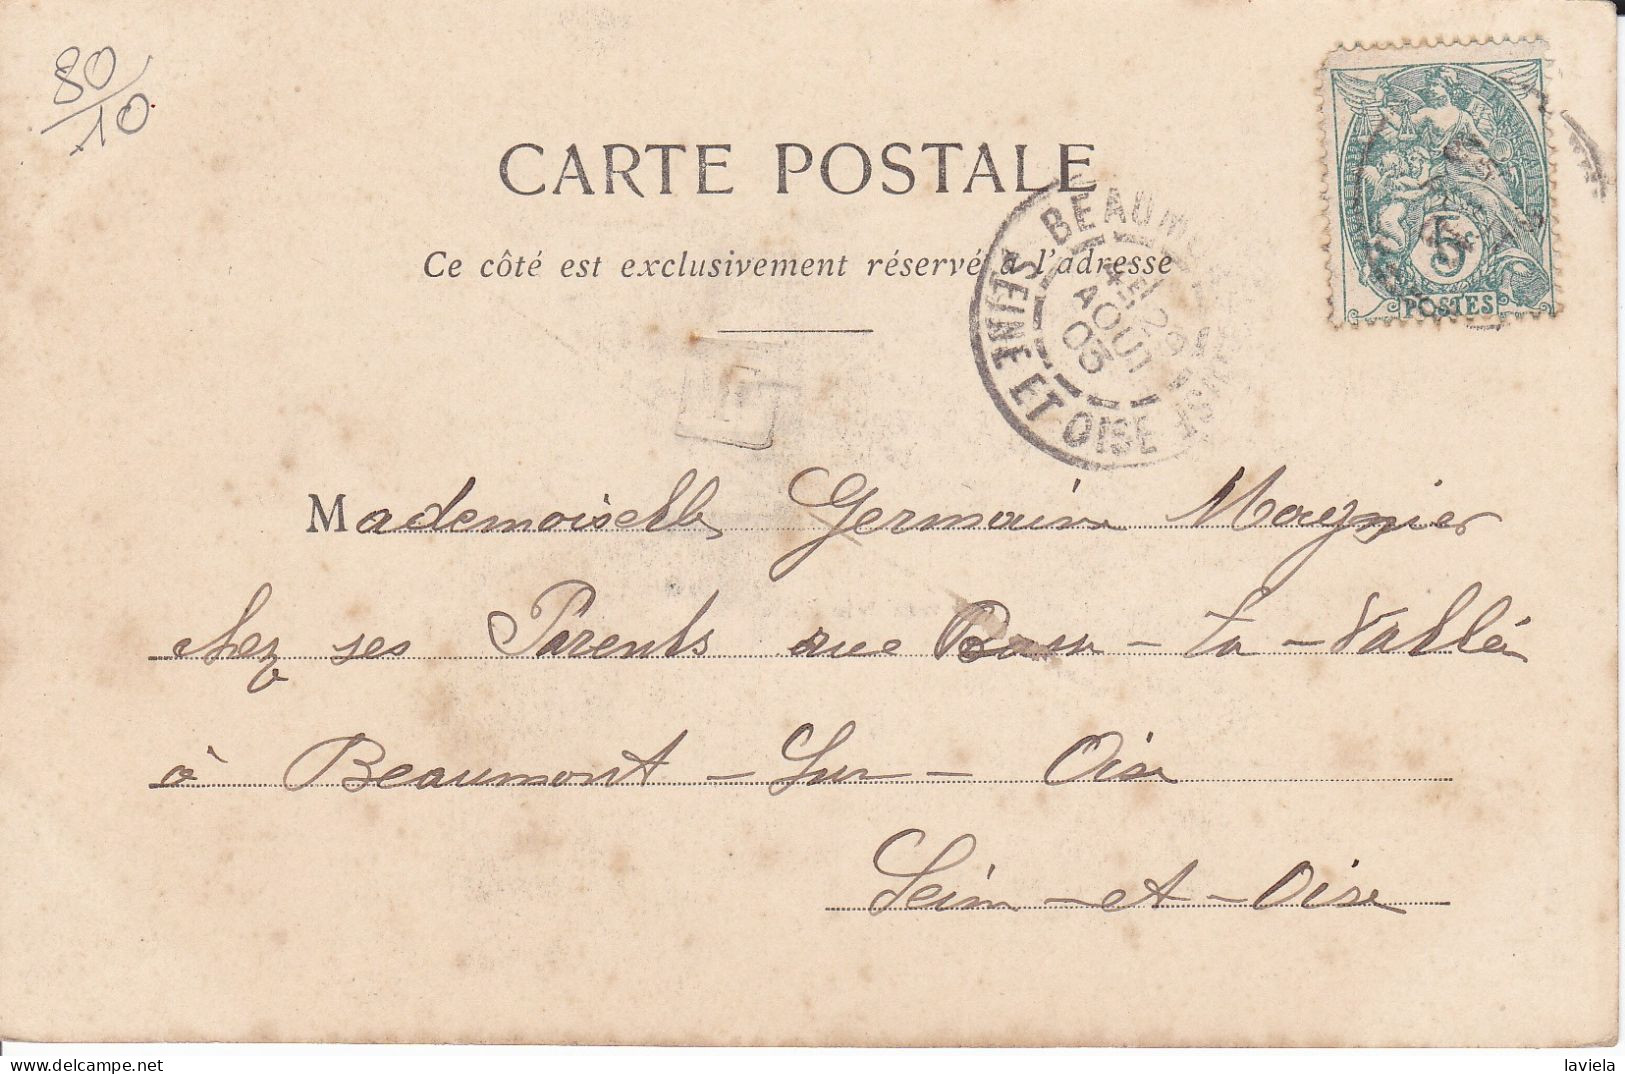 80
10
CARTE POSTALE
Ce côté est exclusivement réservé à l'adresse
BEAUM
SEINE ET OISE
4E 26
AOUT
03
5c
POSTES
Mademoiselle Germaine Magnier
chez ses Parents rue Basse-La-Vallée
à Beaumont-Sur-Oise
Seine-et-Oise
delcampe.net
laviela